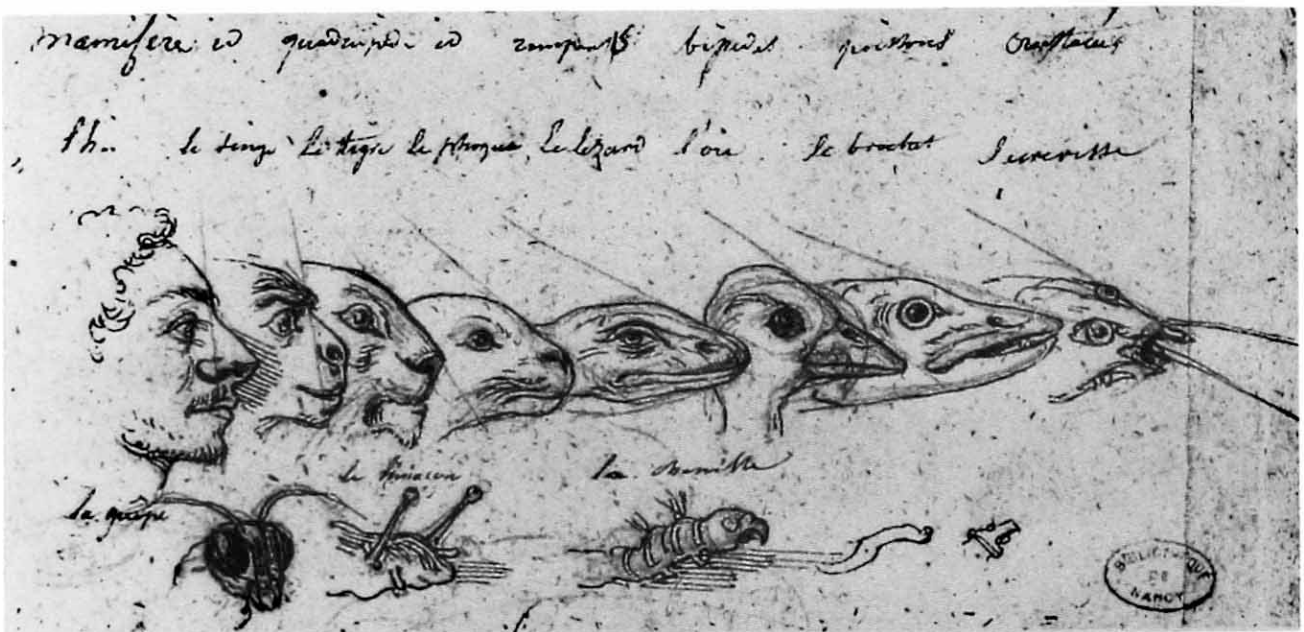 mamifère id quadrupede id rampants bipedes poissons Crustacés
l'h.. le singe Le tigre le phoque Le lezard l'oie le brochet l'ecrevisse
le limaçon la chenille
la guêpe
BIBLIOTHEQUE
DE
NANCY